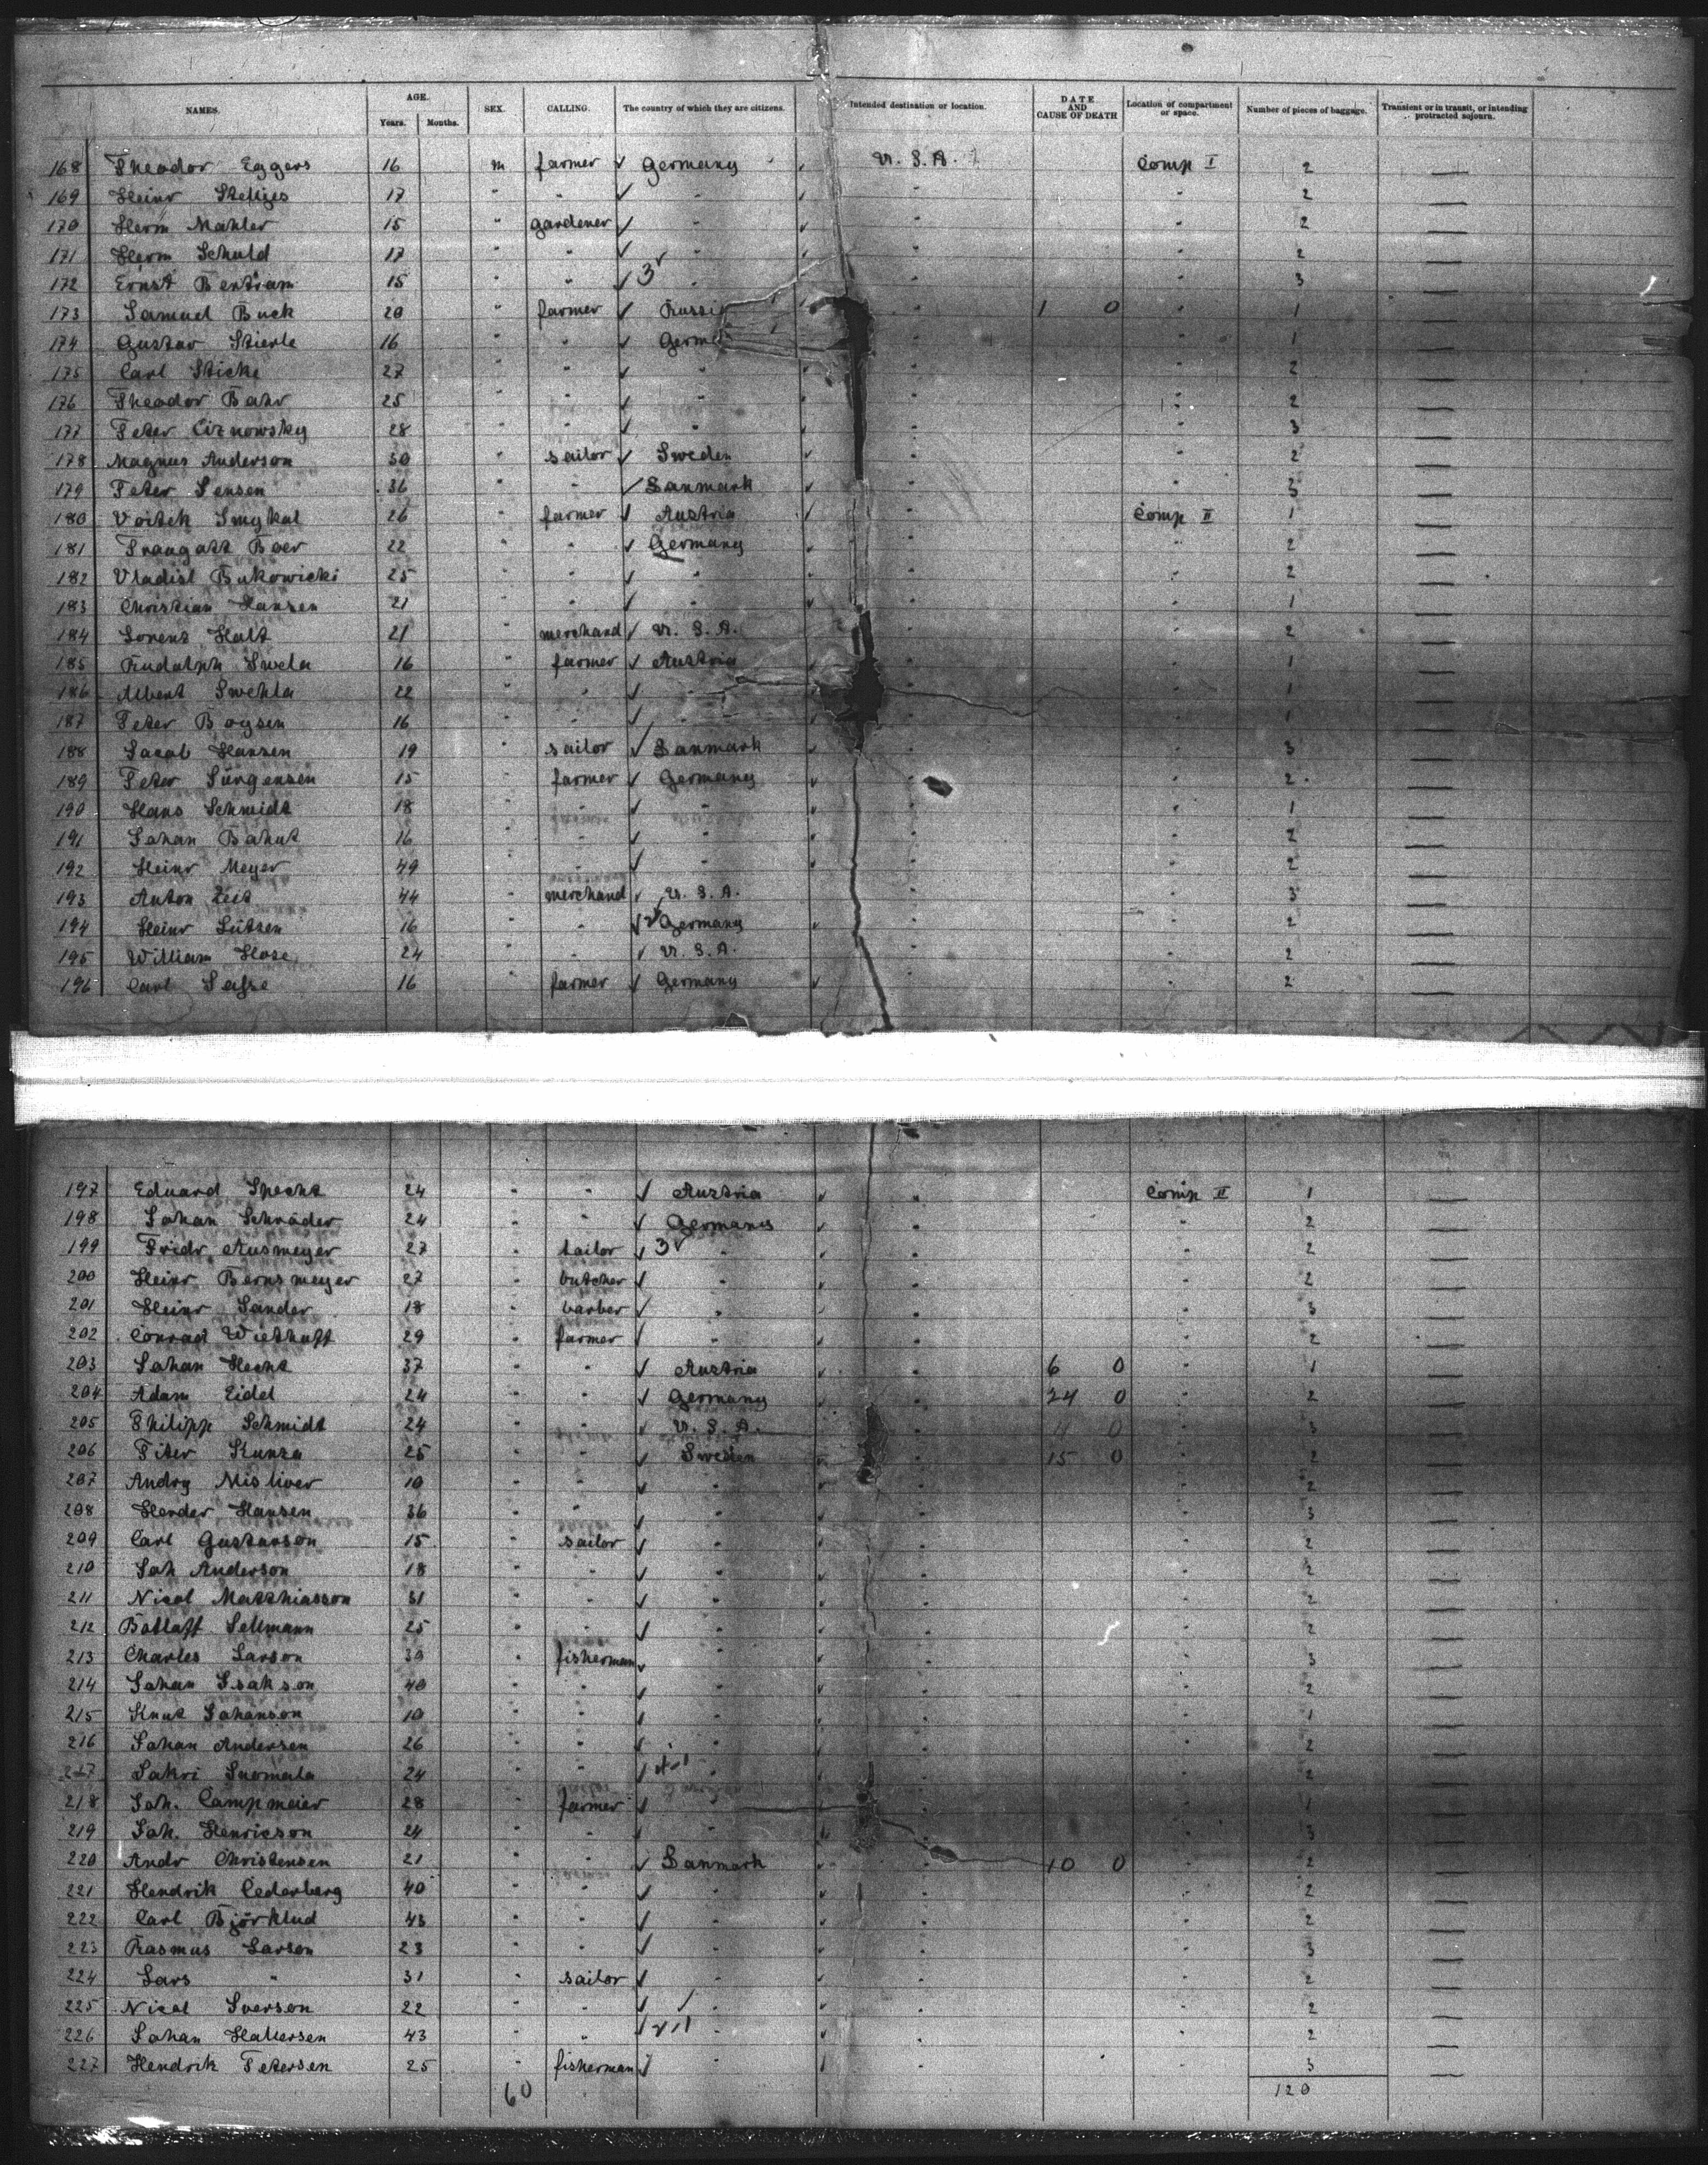 NAMES. AGE. Years. Months. SEX. CALLING. The country of which they are citizens. Intended destination or location. DATE AND CAUSE OF DEATH Location of compartment or space. Number of pieces of baggage. Transient or in transit, or intending protracted sojourn.
168 Theodor Eggers 16 m farmer Germany U. S. A. Comp I 2
169 Heinr 17 " " " " " 2
170 Herm Mahler 15 " gardener " " " 2
171 Herm Schuld 17 " " " " " 2
172 Ernst Bertram 15 " " 3 " " " 3
173 Samuel Buck 20 " farmer Russia " 1 0 " 1
174 Gustav Stierle 16 " " Germ " " 1
175 Carl Sticke 27 " " " " " 2
176 Theodor Bahr 25 " " " " " 2
177 Peter Ciznowsky 28 " " " " " 3
178 Magnus Anderson 30 " sailor Sweden " " 2
179 Peter Jensen 36 " " Danmark " " 3
180 Voitek Smykal 26 " farmer Austria " Comp II 1
181 Traugott Baer 22 " " Germany " " 2
182 Vladisl Bukowicki 25 " " " " " 2
183 Christian Hansen 21 " " " " " 1
184 Lorenz Halt 21 " merchand U. S. A. " " 2
185 Rudolph Swela 16 " farmer Austria " " 1
186 Albert Swehla 22 " " " " " 1
187 Peter Boysen 16 " " " " " 1
188 Jacob Hansen 19 " sailor Danmark " " 3
189 Peter Jürgensen 15 " farmer Germany " " 2
190 Hans Schmidt 18 " " " " " 1
191 Johan Bahnt 16 " " " " " 2
192 Heinr Meyer 49 " " " " " 2
193 Anton Zeit 44 " merchand U. S. A. " " 3
194 Heinr Lütsen 16 " " Germany " " 2
195 William Hose 24 " " U. S. A. " " 2
196 Carl Sasse 16 " farmer Germany " " 2
197 Eduard Specht 24 " " Austria " Comp II 1
198 Johan Schröder 24 " " Germany " " 2
199 Fridr. Ausmeyer 27 " tailor 3 " " " 2
200 Heinr Bernsmeyer 27 " butcher " " " 2
201 Heinr Sander 18 " barber " " " 3
202 Conrad Wiethoff 29 " farmer " " " 2
203 Johan Hecht 37 " " Austria " 6 0 " 1
204 Adam Eidel 24 " " Germany " 24 0 " 2
205 Philipp Schmidt 24 " " U. S. A. " 11 0 " 3
206 Peter Kunza 25 " " Sweden " 15 0 " 2
207 Andry Misliver 19 " " " " " 2
208 Hender Hansen 36 " " " " " 3
209 Carl Gustavson 15 " sailor " " " 2
210 Joh Anderson 18 " " " " " 2
211 Nicol Matthiasson 31 " " " " " 2
212 Botlaff Sellmann 25 " " " " " 2
213 Charles Larson 30 " fisherman " " " 3
214 Johan Isakson 40 " " " " " 2
215 Knut Johanson 19 " " " " " 1
216 Johan Andersen 26 " " " " " 2
217 Sakri Suomala 24 " " " " " 2
218 Joh. Campmeier 28 " farmer " " " 1
219 Joh. Henricson 24 " " " " " 3
220 Andr Christensen 21 " " Danmark " 10 0 " 2
221 Hendrik Cederberg 40 " " " " " 2
222 Carl Björklud 43 " " " " " 2
223 Rasmus Larson 23 " " " " " 3
224 Lars " 31 " sailor " " " 2
225 Nicol Iverson 22 " " " " " 2
226 Johan Hallersen 43 " " " " " 2
227 Hendrik Petersen 25 " fisherman " " " 3
60 120